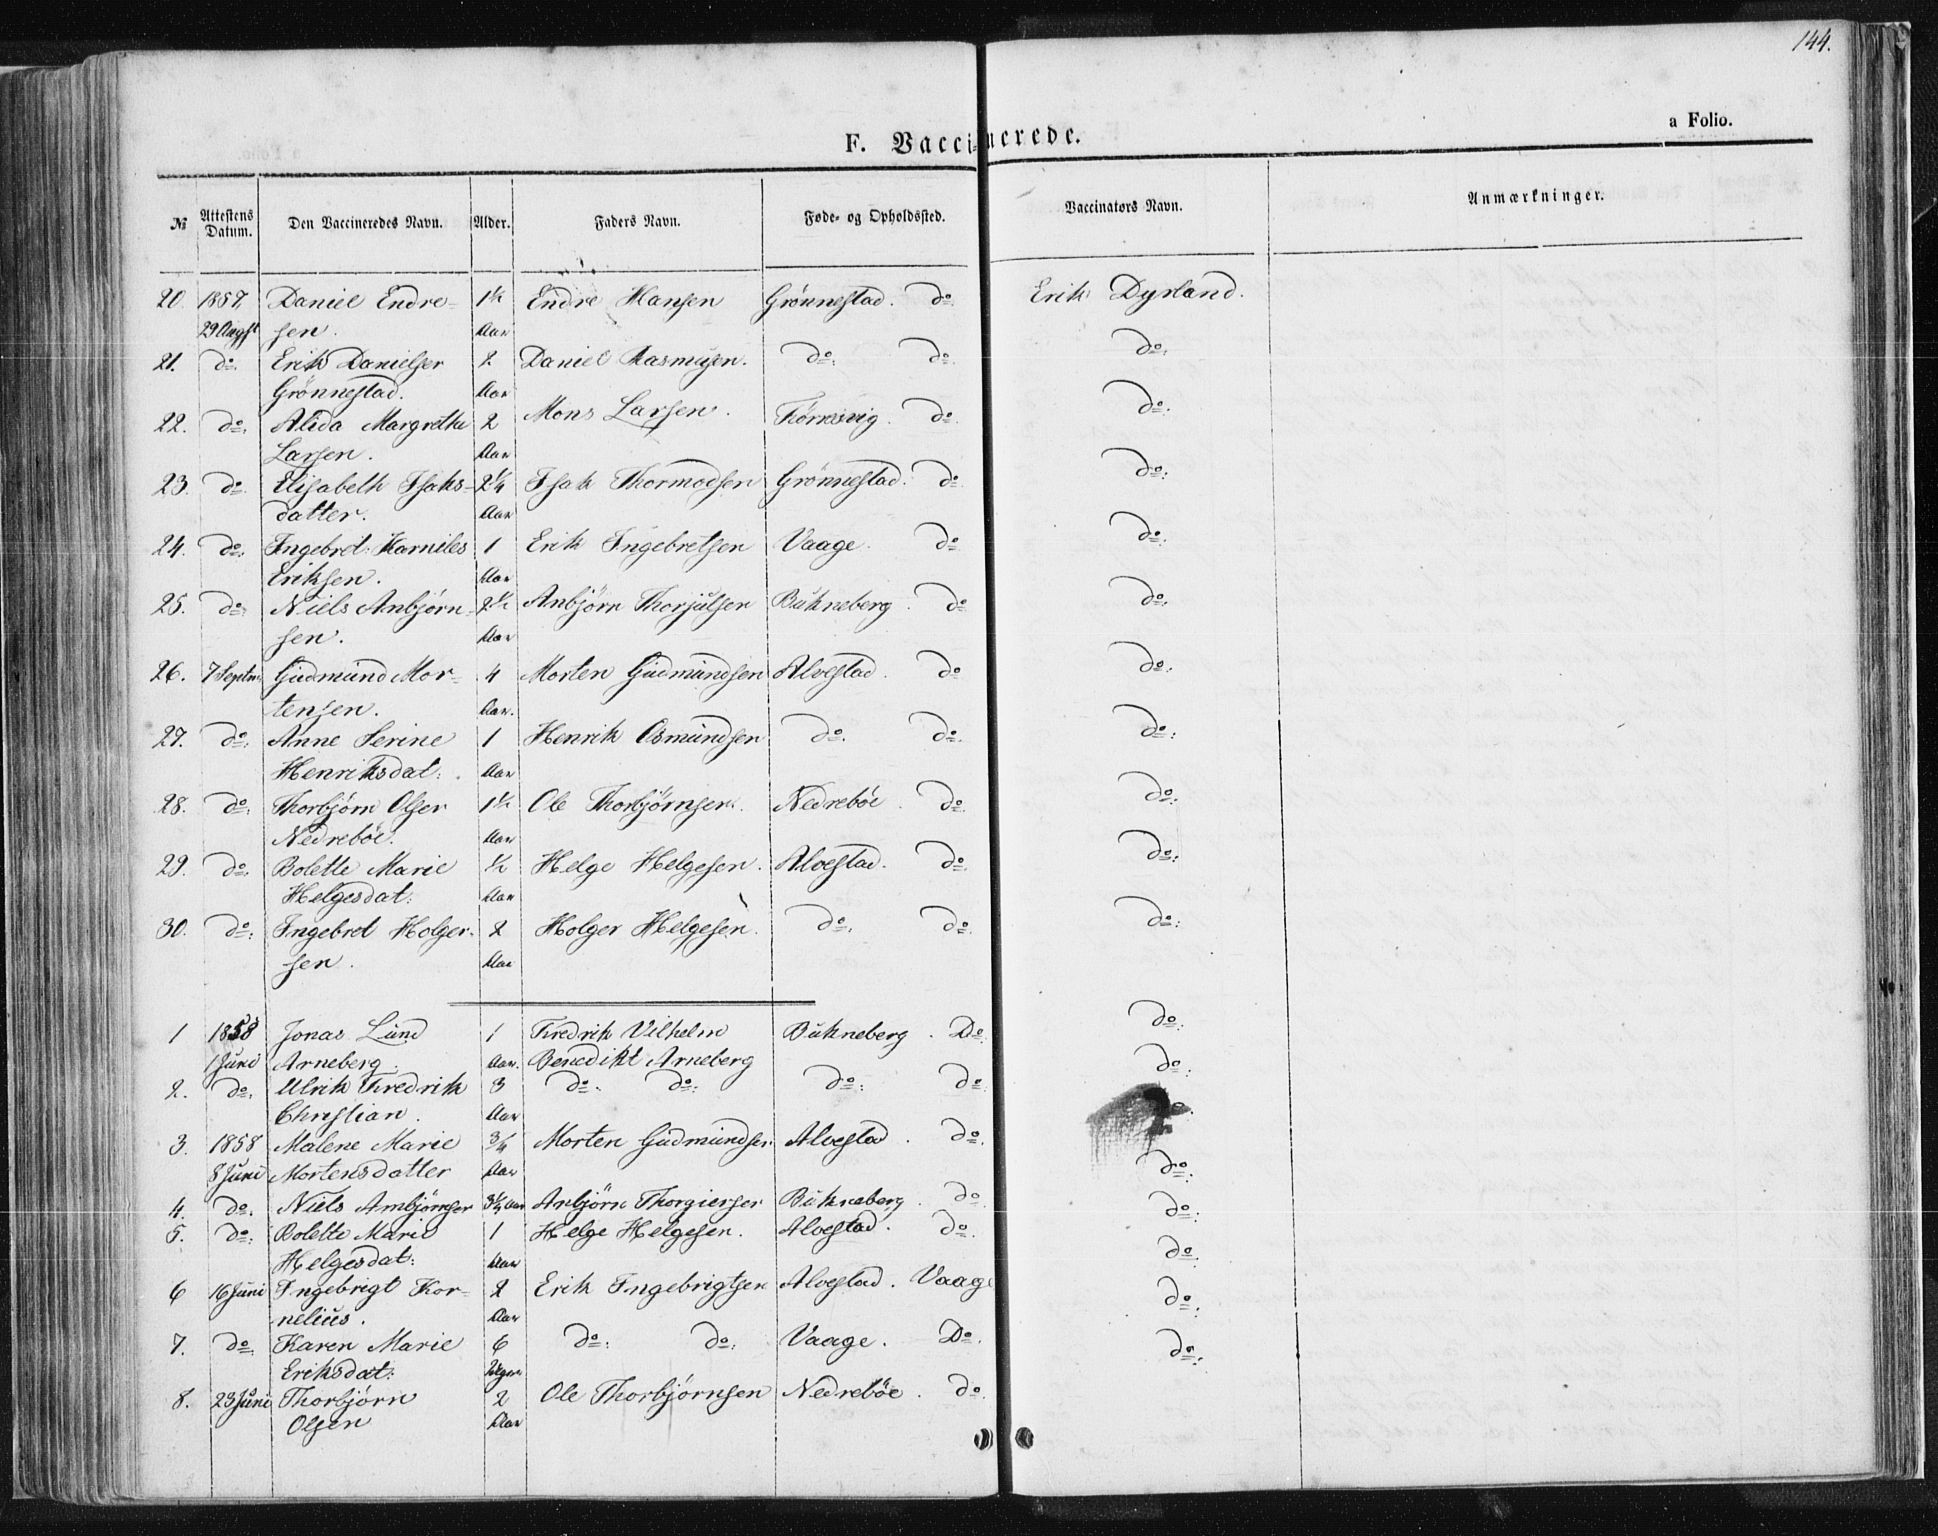 144.
a Folio.
F. Vaccinerede.
№ Attestens Datum. Den Vaccineredes Navn. Alder. Faders Navn. Føde- og Opholdssted. Vaccinators Navn. Anmærkninger.
20. 1857. Daniel Endre- 1½ Endre Hansen Grönnestad. do. Erik Dyrland.
29 Augst sen. Aar
21. do. Erik Danielsen 2 Daniel Rasmusen. do. do. do.
Grönnestad. Aar
22. do. Alida Margrethe 2 Mons Larsen. do. do.
Larsen. Aar
23. do. Elisabeth Isaks- 2¼ Isak Thormodsen Grönnestad. do. do.
datter. Aar
24. do. Ingebret Karniles 1 Erik Ingebretsen Vaage. do. do.
Eriksen. Aar
25. do. Niels Anbjörn- 2½ Anbjörn Thorjulsen Bukneberg. do. do.
sen. Aar
26. 7 Septm: Gudmund Mor- 4 Morten Gudmundsen Alvestad. do. do.
tensen. Aar.
27. do. Anne Serine 1 Henrik Osmundsen do. do. do.
Henriksdat: Aar
28. do. Thorbjörn Olsen 1½ Ole Thorbjörnsen. Nedreböe. do. do.
Nedreböe. Aar
29. do. Bolette Marie ½ Helge Helgesen. Alvestad. do. do.
Helgesdat: Aar
30. do. Ingebret Holger- 2 Holger Helgesen. do. do. do.
sen. Aar
1 1858 Jonas Lund 1 Fredrik Vilhelm Bukneberg. Do. do.
1 Juni Arneberg. Aar. Benedikt Arneberg
2. do. Ulrik Fredrik 3 do. do. do. do. do.
Christian. Aar
3. 1858 Malene Marie ¾ Morten Gudmundsen Alvestad. do.
8 Juni Mortensdatter Aar do.
4. do. Niels Ambjörnsen 3¼ Aar Anbjörn Thorgiersen Bukneberg. do. do.
5. do. Bolette Marie 1 Helge Helgesen. Alvestad. do. do.
Helgesdat: Aar
6 16 Juni Ingebrigt Kor- 2 Erik Ingebrigtsen Alvestad. Vaage do.
nelius. Aar
7. do. Karen Marie 6 do. do. Vaage. Do. do.
Eriksdat: Uger
8. 23 Juni Thorbjörn 2 Ole Thorbjörnsen Nedreböe. do.
Olsen Aar